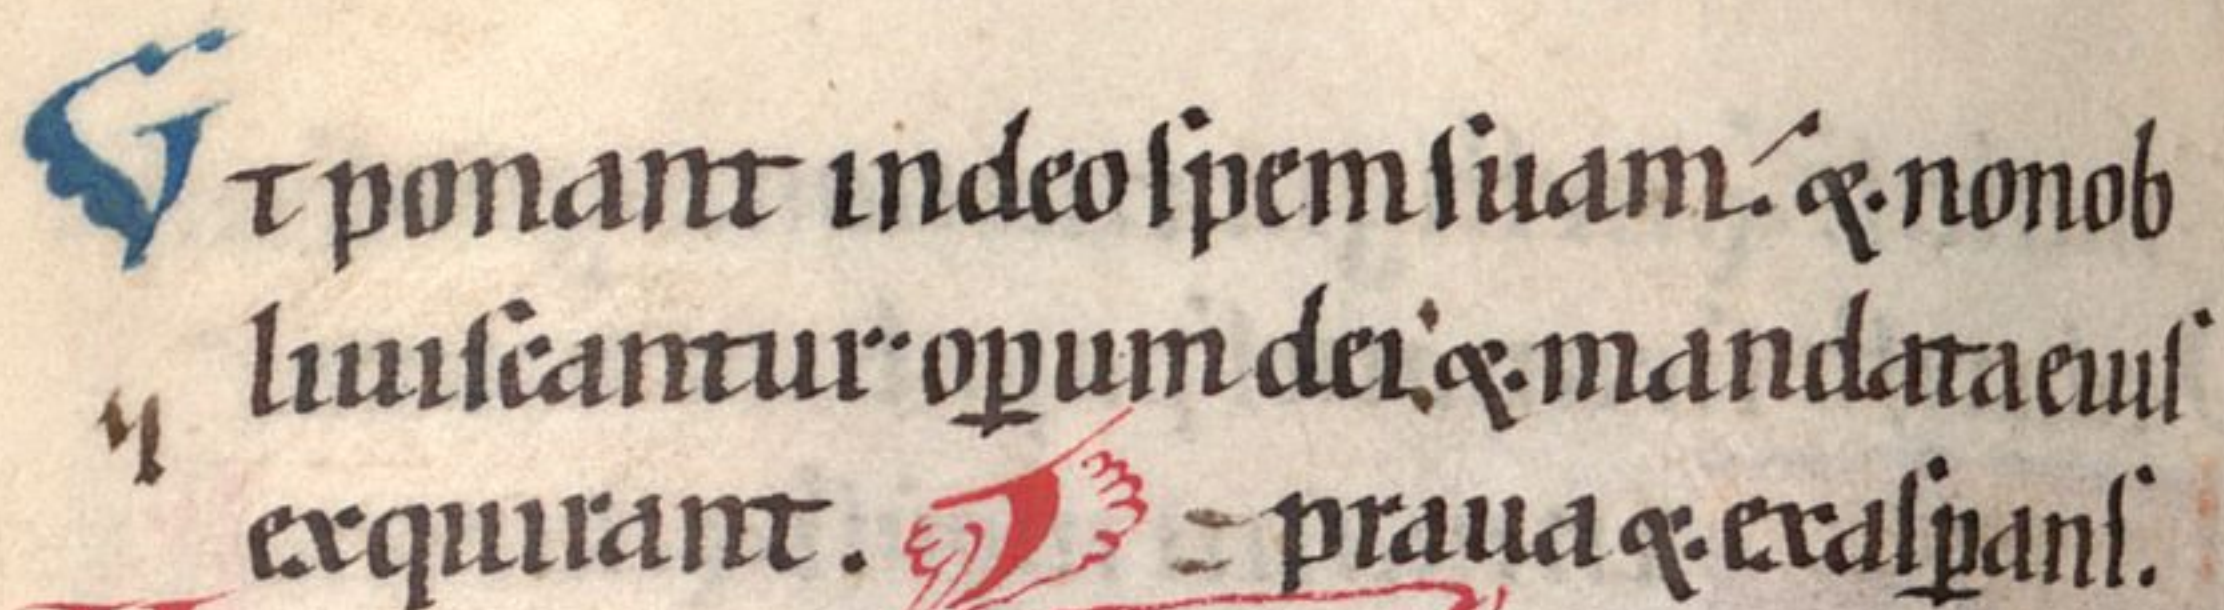 Ut ponant indeo ſpem ſuam. & nonob
liuiſcantur· oꝑum dei; & mandata euiſ
exquirant.
praua &. exaſꝑanſ.